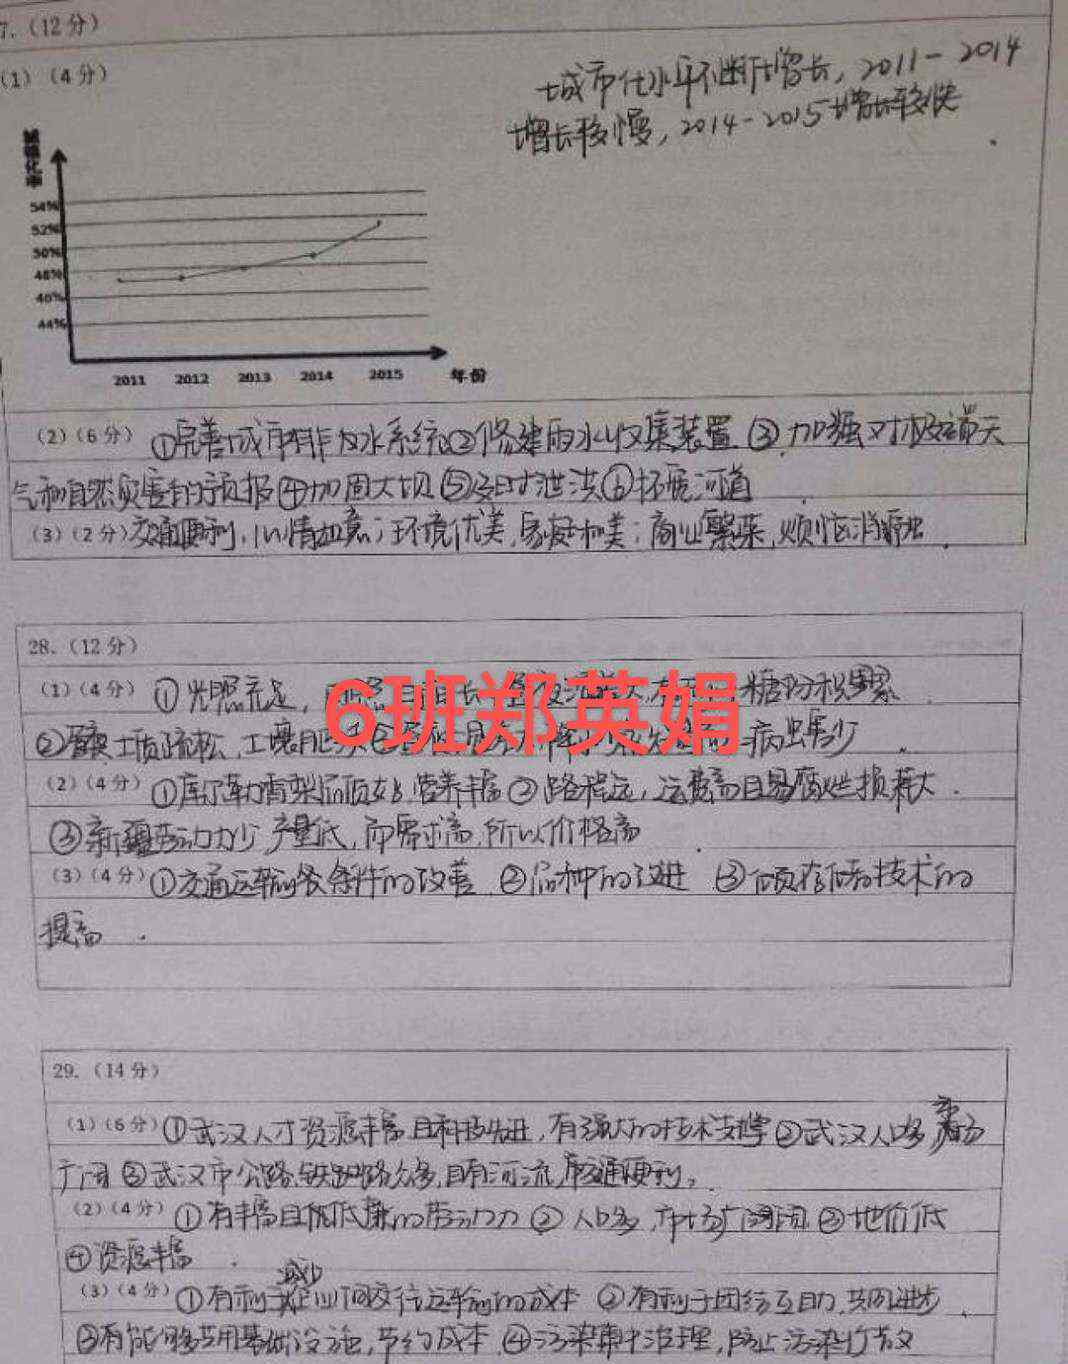 7.（12分）
（1）（4分）
城市化水平不断增长，2011－2014
增长较慢，2014－2015增长较快
城镇化率
54%
52%
50%
48%
46%
44%
2011 2012 2013 2014 2015 年份
（2）（6分）①完善城市排水系统②修建雨水收集装置 ③加强对极端天
气和自然灾害的预报④加固大坝⑤及时泄洪⑥拓宽河道
（3）（2分）交通便利，心情如意；环境优美，家庭和美；商业繁荣，烦恼消
28.（12分）
（1）（4分）①光照充足，糖分积累
6班郑英娟
②土质疏松、土壤肥沃 病虫害少
（2）（4分）①库尔勒香梨营养丰富②路程远，运费高且易腐烂损耗大
③新疆劳动力少 产量低，而需求高，所以价格高
（3）（4分）①交通运输条件的改善 ②品种的改进 ③储存保鲜技术的
提高
29.（14分）
（1）（6分）①武汉人才资源丰富且科技先进，有强大的技术支撑②武汉人口多 市场
广阔③武汉市公路、铁路众多，且有河流，交通便利。
（2）（4分）①有丰富且低廉的劳动力②人口多，市场广阔③地价低
④资源丰富
减少
（3）（4分）①有利于企业间交往运输的成本 ②有利于团结互助，共同进步
③有能够共用基础设施，节约成本④污染集中治理，防止污染扩散